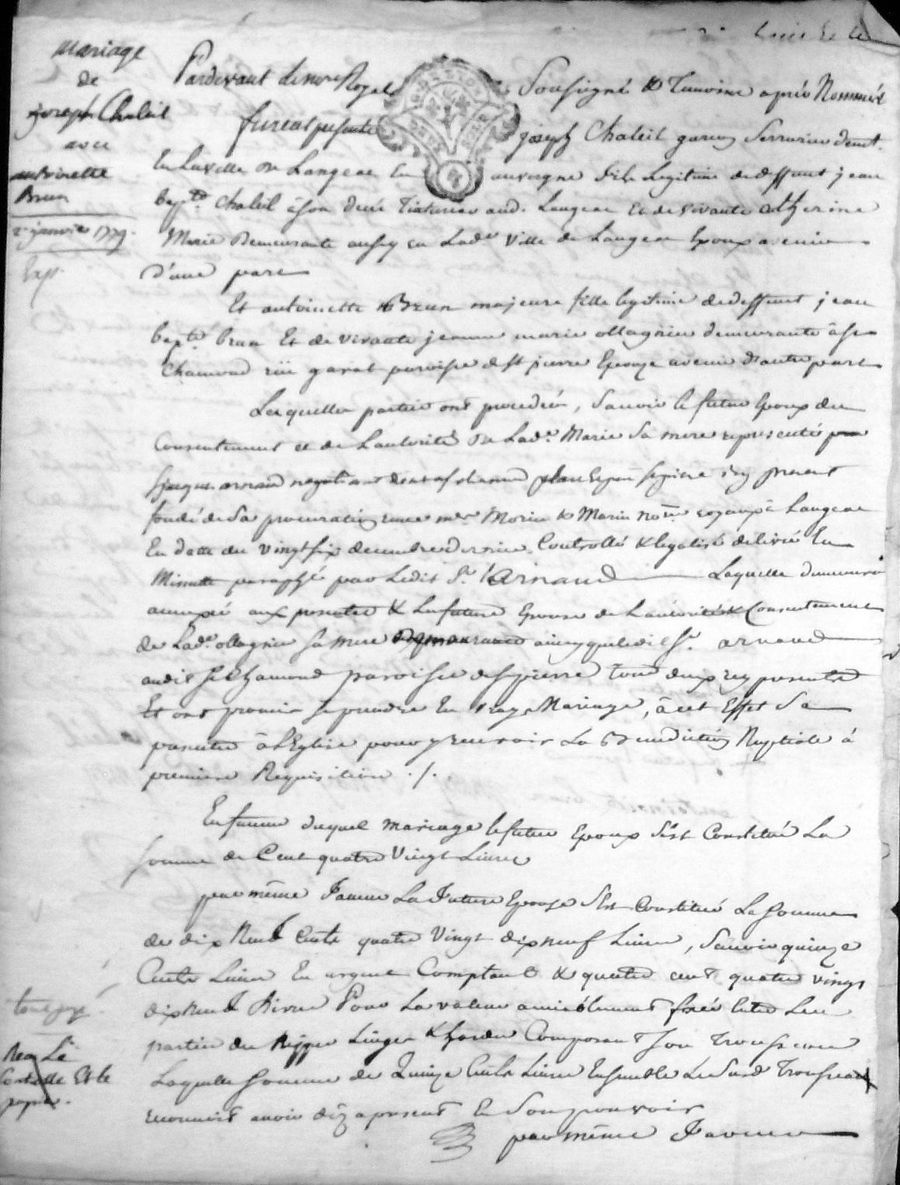 mariage
de
joseph Chaleil
avec
antoinette
Brun
2e janvie 1779
Exp.
Pardevant Le nore Royal Soussigné & Temoins après Nommés
furent presents joseph Chaleil garcon Serrurier demt.
En La ville de Langeac En auvergne fils Legitime de deffunt jean
bapte. Chaleil à son deces audt. Langeac Et de vivante Catherine
Marie Demeurante aussy en Lade. ville de Langeac Epoux avenir
d'une part
Et antoinette Brun majeure fille legitime de deffunt jean
bapte. brun Et de vivante jeanne marie ollagnier demeurante à st
Chamond rüe garat paroisse de st pierre Epouze avenir d'autre part
Lesquelles parties ont procedées, Savoir le futur Epoux du
Consentement et de L'autorité de Lade. Marie Sa mere representée par
arnaud negotiant dent. a st chamond icy present
fondé de Sa procuration me. Morin & Marin nore. royaux à Langeac
En date du vingt six decembre dernier Controllé & legalisé delivré En
Minutte paraphé par Ledit Sr. Arnaud Laquelle demeurera
annexée aux presentes & La future Epouse de L'autorité & Consentement
de Lade. ollagnier sa mere ainsy que ledit Sr. arnaud
audit St Chamond paroisse de st pierre tous deux icy presents
Et ont promis se prendre En vray Mariage, à cet Effet Se
presenter à L'Eglise pour y recevoir La Benediction Nuptiale à
premiere Requisition ./.
En faveur duquel mariage le futur Epoux s'est Constitué La
somme de Cent quatre Vingt Livres
par même faveur La future Epouze s'Est Constitué La somme
de dix Neuf Cents quatre Vingt dix neuf Livres, Savoir quinze
Cents Livres En argent Comptant & quatre cent quatre vingt
dix neuf Livres Pour La valeur amiablement fixée Entre Les
parties des Nippes Linges & hardes Composant Son Trousseau
Laquelle somme de Quinze Cents Livres Ensemble Le Susd. Trousseau
reconnoit avoir dez apresent En Son pouvoir
par même faveur
Et le